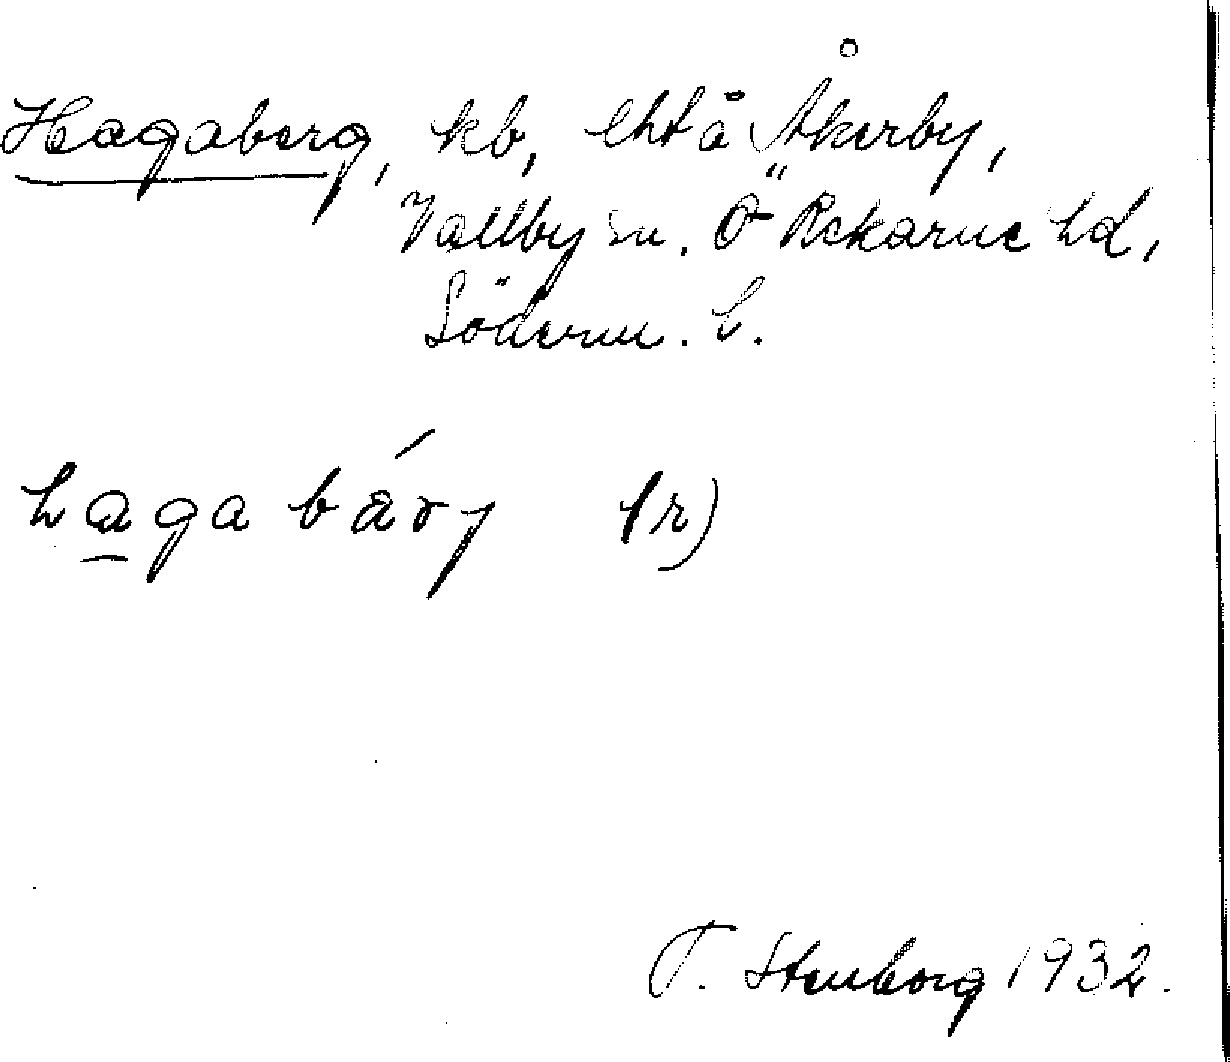 Hagaberg, kb, lht å Åkerby,
Vallby sn. Ö Rekarne hd,
Söderm. l.
hagabárj (r)
T. Stenborg 1932.